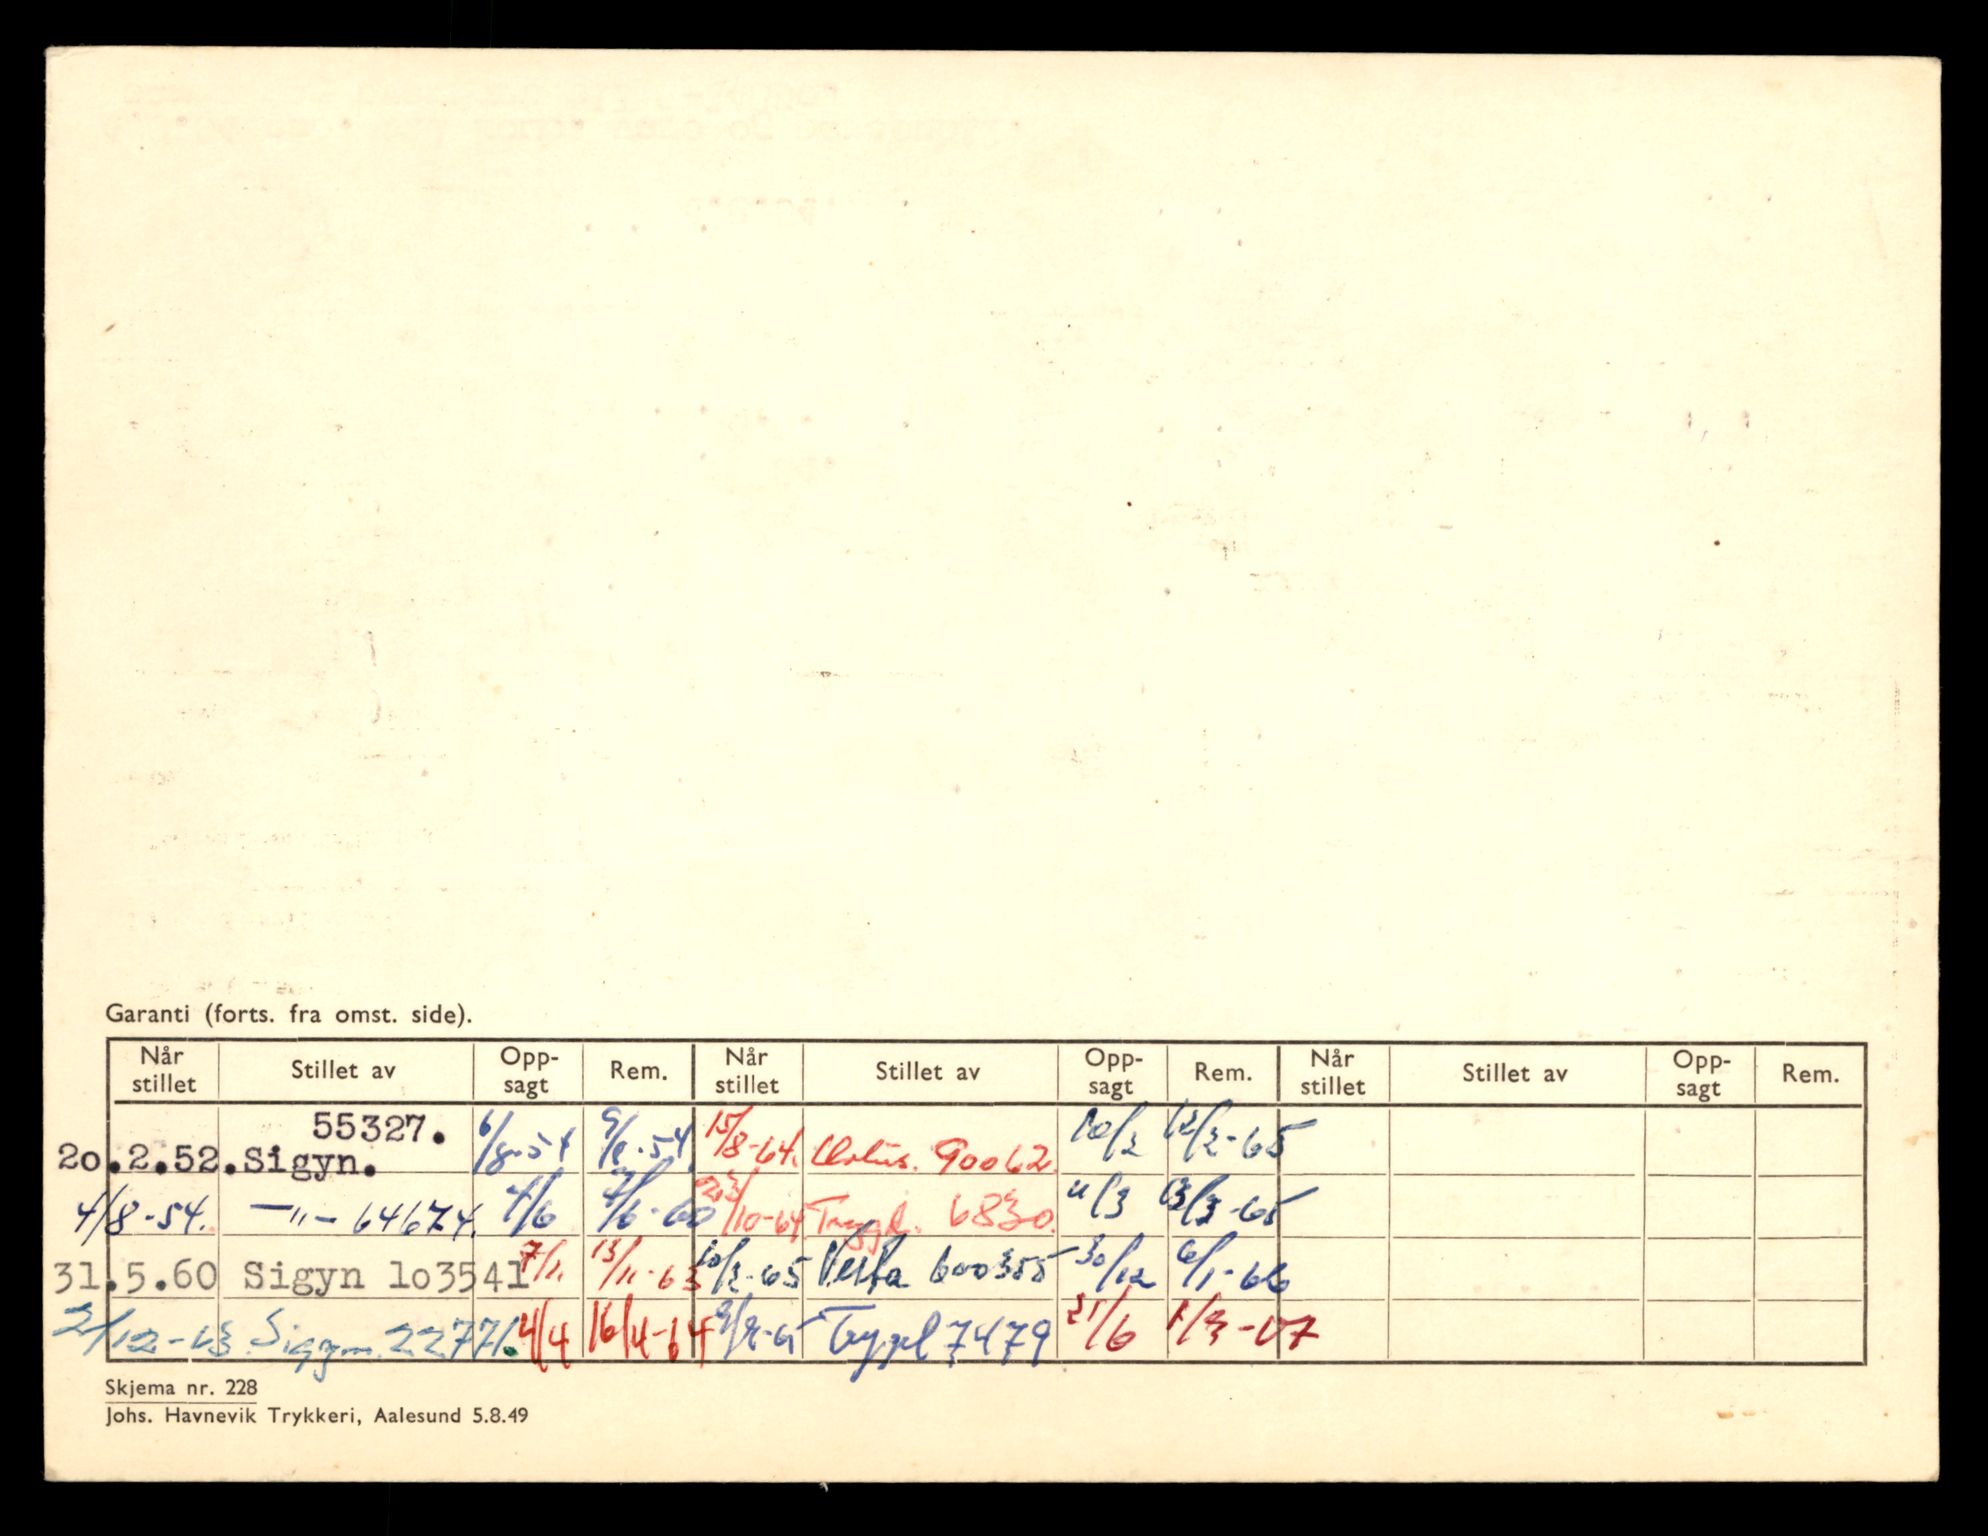 Garanti (forts. fra omst. side).
Når stillet Stillet av Opp-sagt Rem. Når stillet Stillet av Opp-sagt Rem. Når stillet Stillet av Opp-sagt Rem.
55327.
2o.2.52. Sigyn. 6/8-54 9/8-54 15/8-64. 90062 10/2 12/2-65
4/8-54. —"— 64674. 4/6 7/6-60 23/10-64 Trygd. 6830. 11/3 13/3-65
31.5.60 Sigyn 1o3541 7/11 13/11-63 10/2-65 Vesta 600355 30/12 6/1-66
2/12-63 Sigyn 22771. 4/4 16/4-64 Trygd 7479 21/6 1/3-67
Skjema nr. 228
Johs. Havnevik Trykkeri, Aalesund 5.8.49